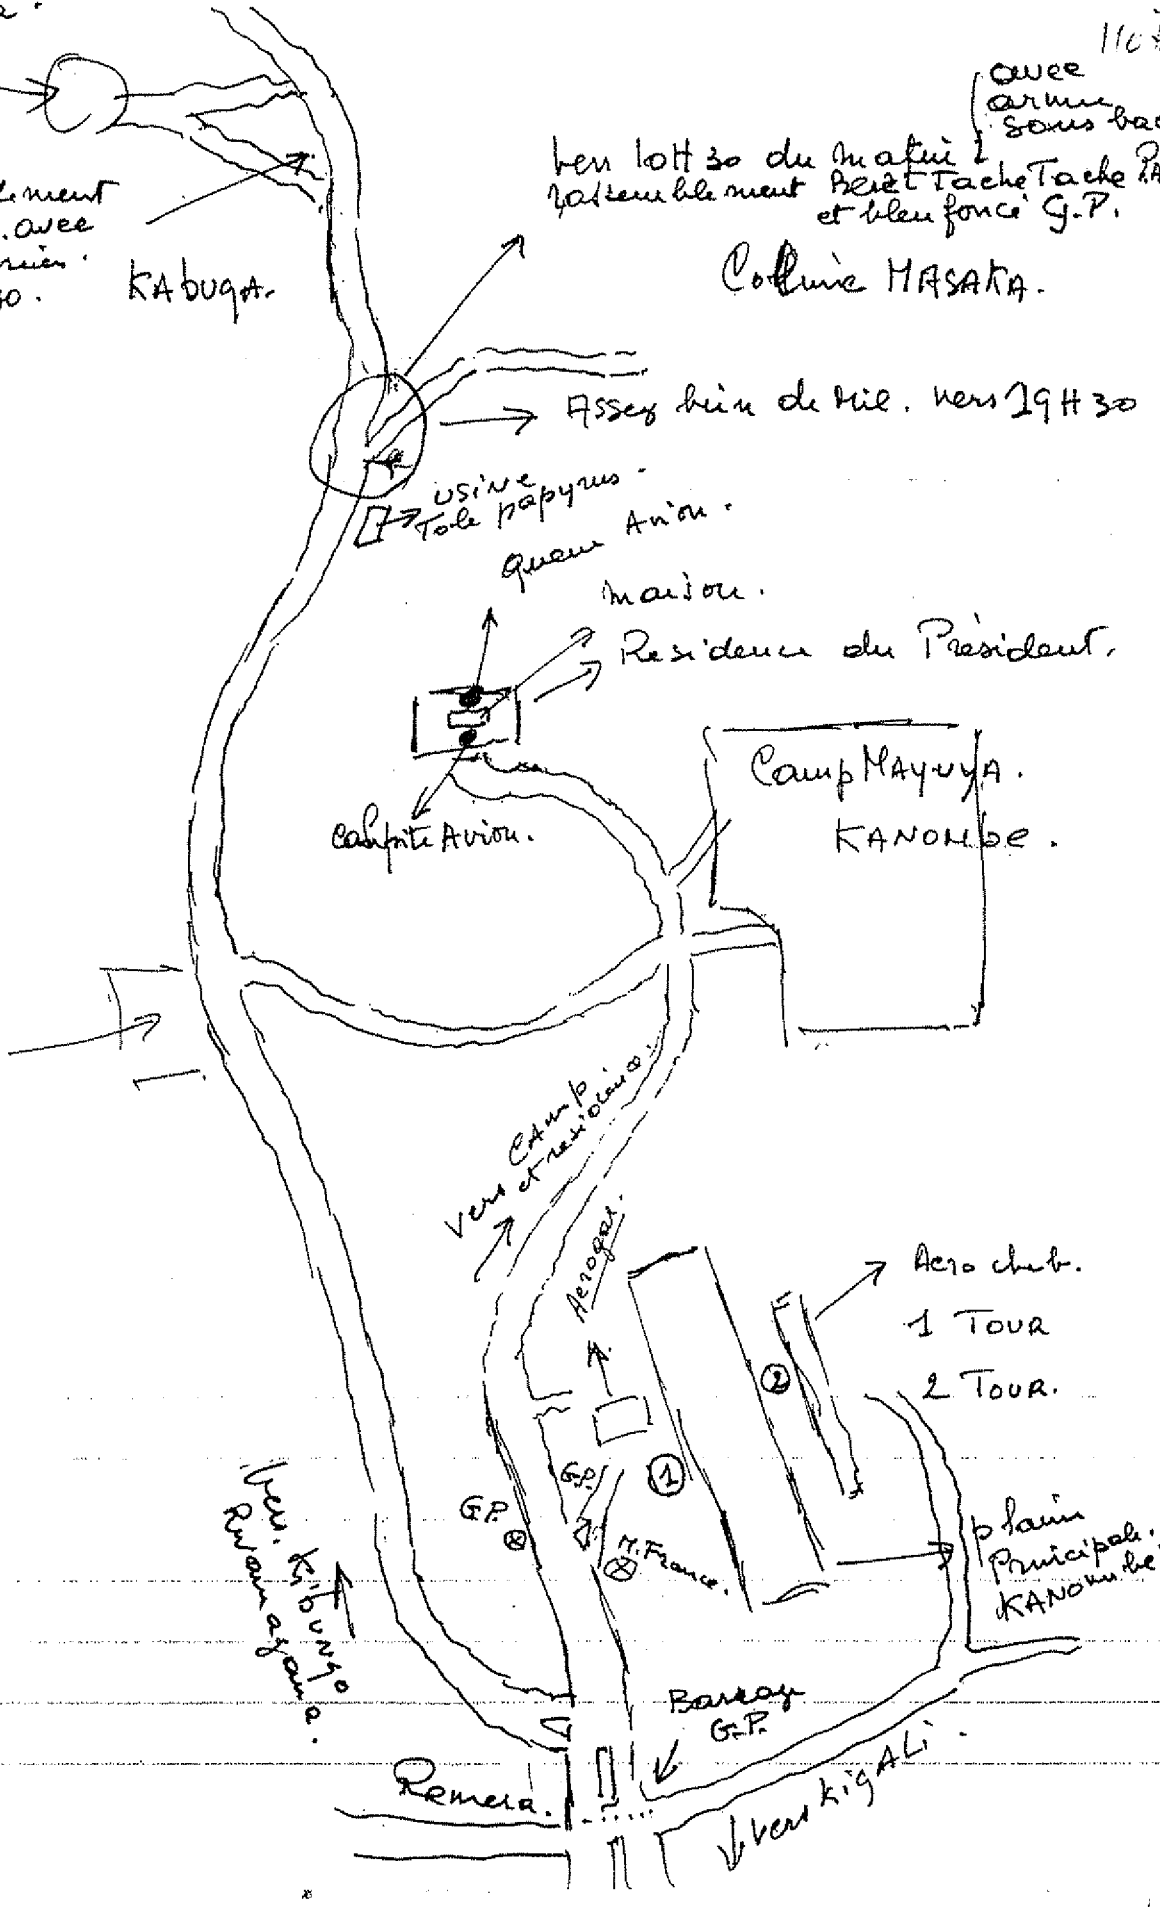 110
avec
armu
sous
vers 10H30 du matin
rassemblement Beret Tache Tache
et bleu foncé G.P.
lement
avec
Kabuga.
Colline MASAKA.
Assez bien de Mil. vers 19H30
usine
Tole papyrus.
Queue Avion.
maison.
Residence du Président.
Camp MAYUYA.
KANOMbe.
Cockpite Avion.
Vers Camp
et residence.
Aerogar.
Aero club.
1 TOUR
2 TOUR.
2
1
G.P.
G.P.
M. France.
plaine
Principale.
KANOMbe
Vers Kibungo
Rwamagana.
Barrage
G.P.
Remera.
vers KigALi.